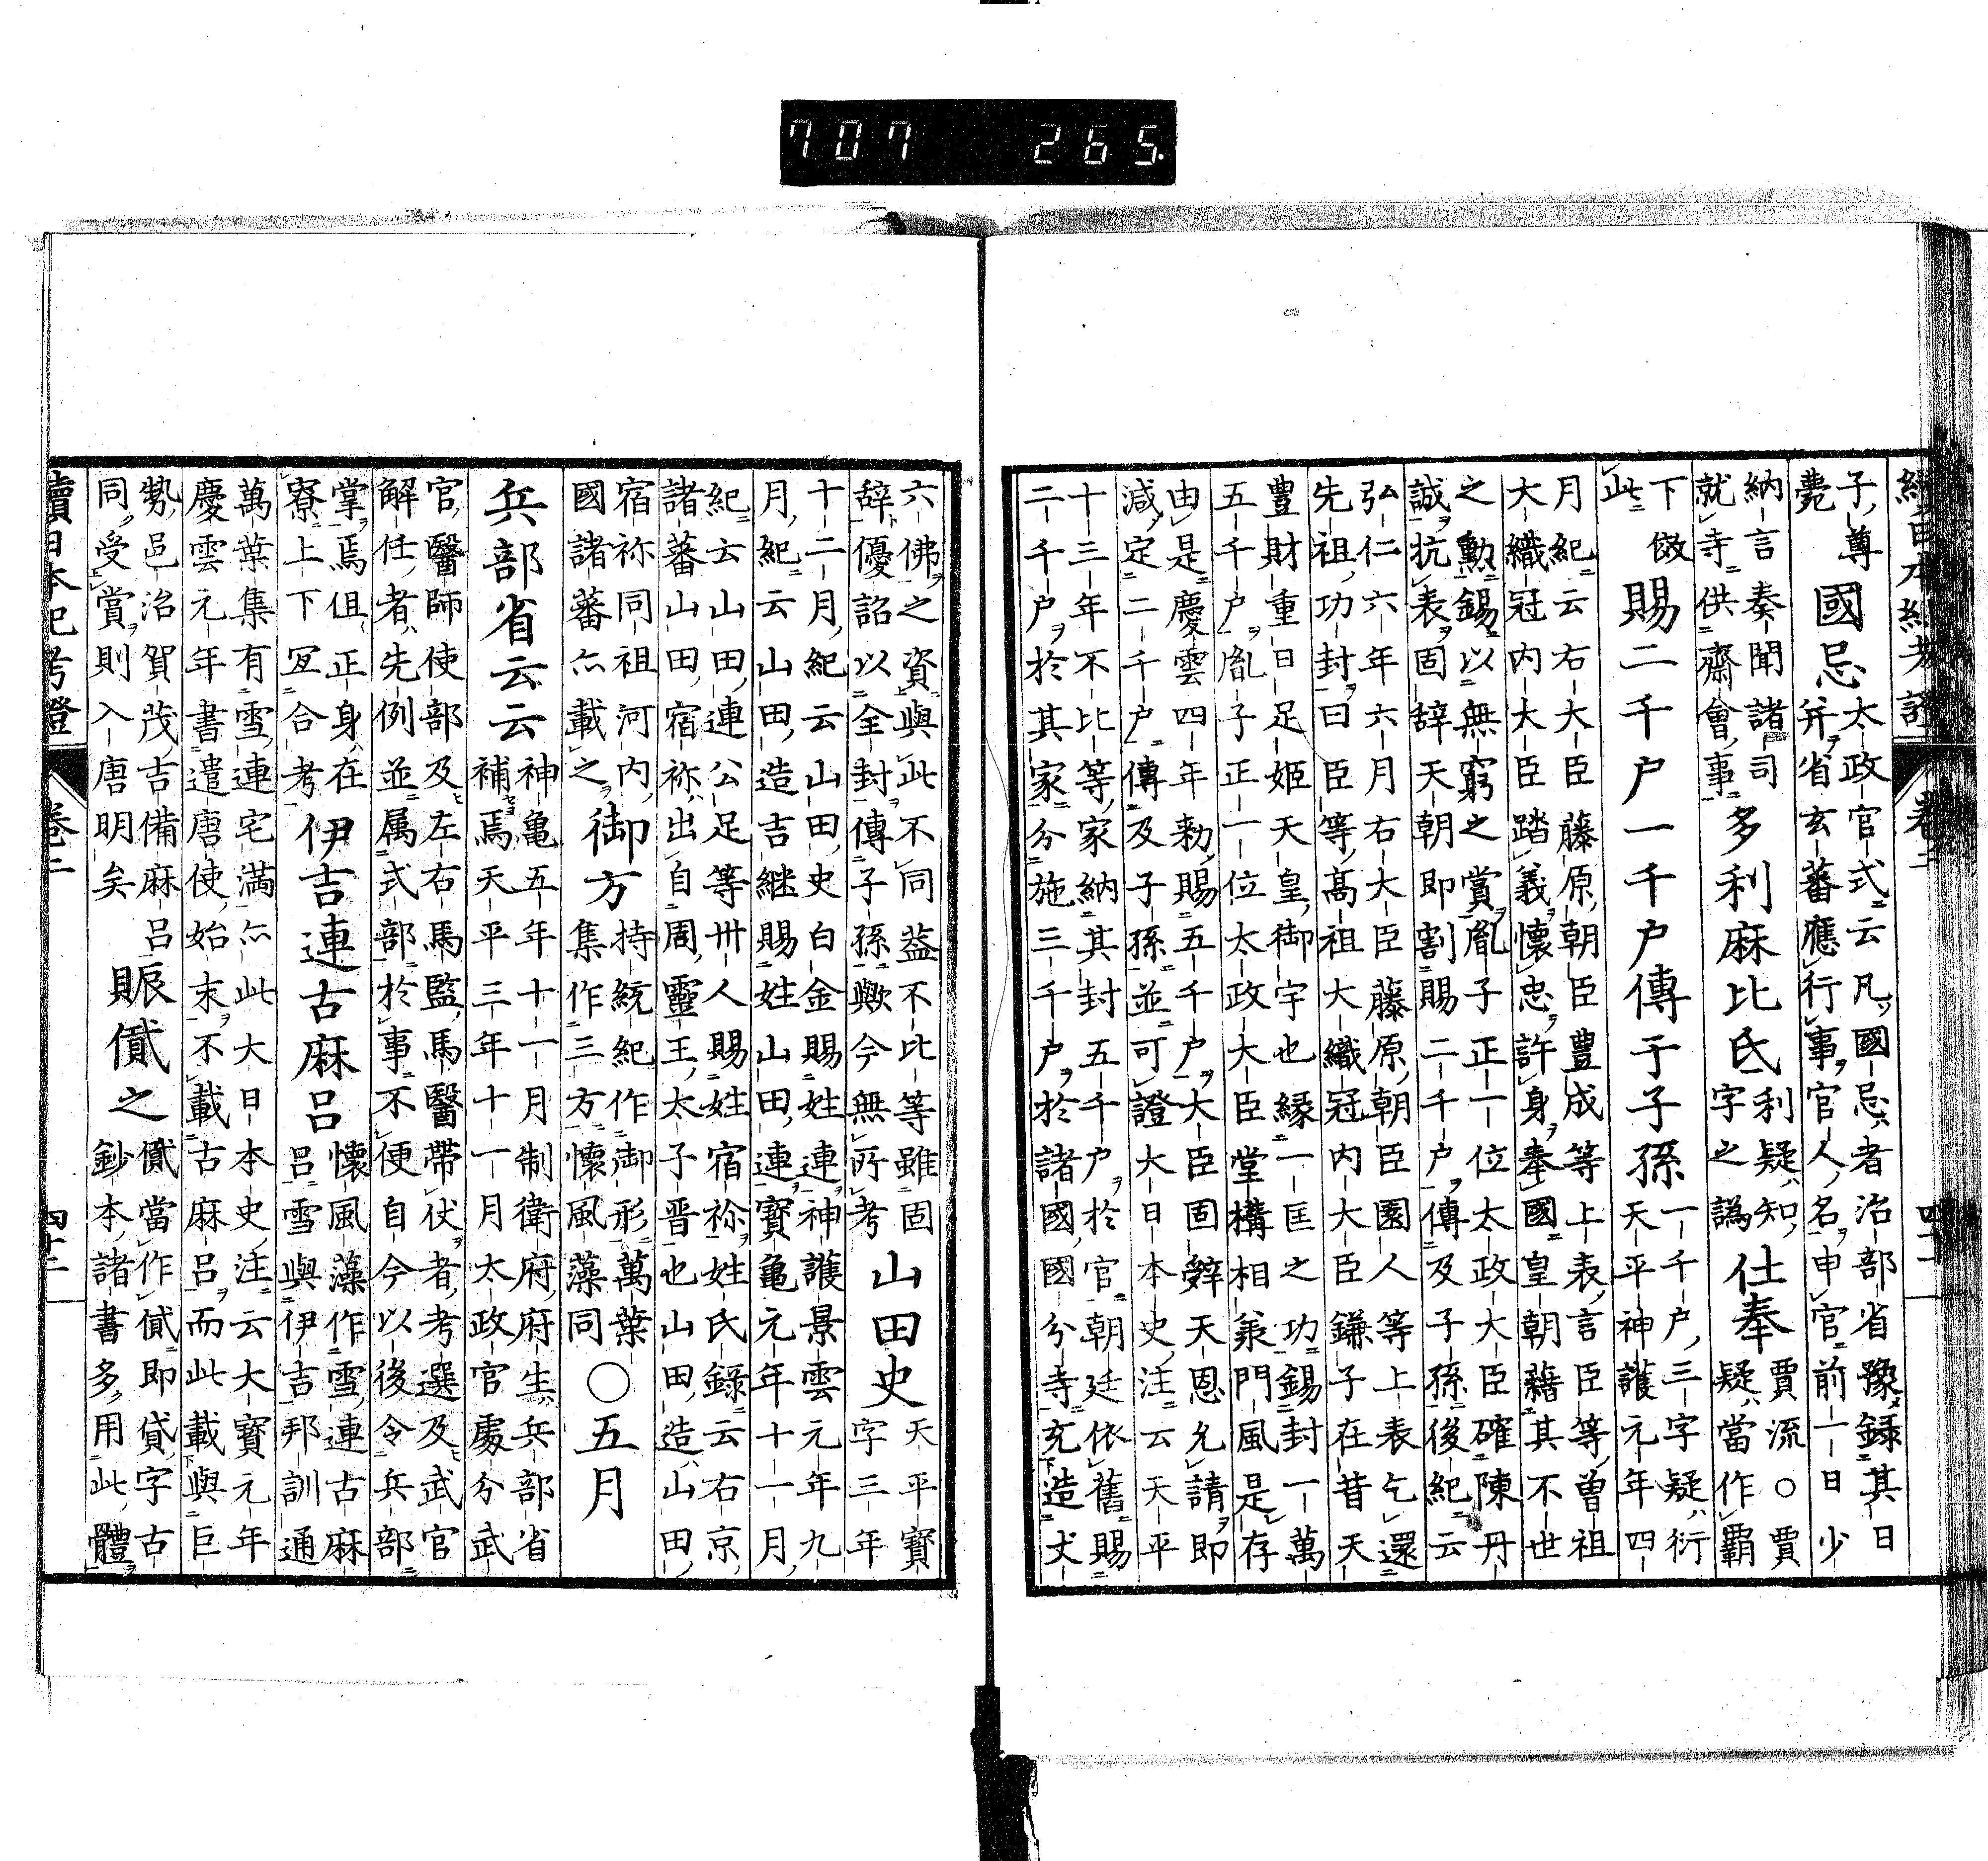 707 265
續日本紀考證
卷二
四十二
子尊
薨
國忌
太政官式云凡國忌者治部省豫録其日少
弁省玄蕃應行事官人名申官前一日少
納言奏聞諸司
就寺供齋會事
多利麻比氏
利疑知
字之譌
仕奉
賈流○賈
疑當作霸
下傚
此
賜二千戸一千戸傳于子孫
一千戸三字疑衍
天平神護元年四
月紀云右大臣藤原朝臣豊成等上表言臣等曽祖
大織冠内大臣踏義懐忠許身奉國皇朝藉其不世
之勲錫以無窮之賞胤子正一位太政大臣確陳丹
誠抗表固辞天朝即割賜二千戸傳及子孫後紀云
弘仁六年六月右大臣藤原朝臣園人等上表乞還
先祖功封曰臣等髙祖大織冠内大臣鎌子在昔天
豊財重日足姫天皇御宇也縁一匡之功錫封一萬
五千戸胤子正一位太政大臣堂構相兼門風是存
由是慶雲四年勅賜五千戸大臣固辤天恩允請即
減定二千戸傳及子孫並可證大日本史注云天平
十三年不比等家納其封五千戸於官朝廷依舊賜
二千戸於其家分施三千戸於諸國國分寺充造丈
六佛之資與此不同葢不比等雖固
辞優詔以全封傳子孫歟今無所考
山田史
天平寳
字三年
十二月紀云山田史白金賜姓連神護景雲元年九
月紀云山田造吉継賜姓山田連寳亀元年十一月
紀云山田連公足等卅人賜姓宿祢姓氏録云右京
諸蕃山田宿祢出自周靈王太子晋也山田造山田
宿祢同祖河内
國諸蕃亦載之
御方
持統紀作御形萬葉
集作三方懐風藻同
○五月
兵部省云云
神亀五年十一月制衛府府生兵部省
補焉天平三年十一月太政官處分武
官醫師使部及左右馬監馬醫帯仗者考選及武官
解任者先例並属式部於事不便自今以後令兵部
掌焉伹正身在
寮上下冝合考
伊吉連古麻呂
懐風藻作雪連古麻
呂雪與伊吉邦訓通
萬葉集有雪連宅満亦此大日本史注云大寳元年
慶雲元年書遣唐使始末不載古麻呂而此載與巨
勢邑治賀茂吉備麻呂
同受賞則入唐明矣
賑儥之
儥當作貣即貸字古
鈔本諸書多用此體
續日本紀考證
卷二
四十二